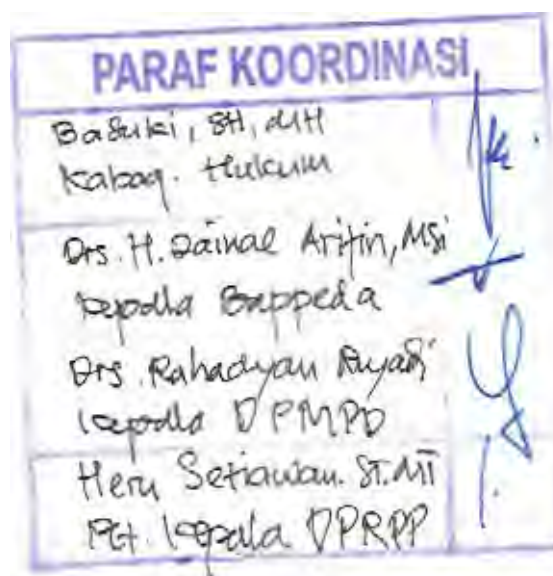 PARAF KOORDINASI
Basuki, SH, MH
Kabag. Hukum
Drs. H. Zainal Arifin, MSi
Kepala Bappeda
Drs. Rahadyan
Kepala DPMPD
Heru Setiawan. ST. MT
Plt. Kepala DPRPP